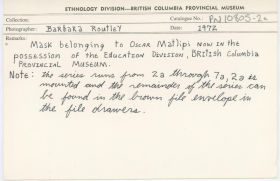 ETHNOLOGY DIVISION—BRITISH COLUMBIA PROVINCIAL MUSEUM
Collection: Catalogue No.: PN 10805-2a
Photographer: Barbara Routley Date: 1972
Remarks:
MASK BELONGING TO OSCAR MATLIPI NOW IN THE
POSSESSION OF THE EDUCATION DIVISION, BRITISH COLUMBIA
PROVINCIAL MUSEUM.
NOTE: the series runs from 2a through 7a, 2a is
mounted and the remainder of the series can
be found in the brown file envelope in
the file drawers.